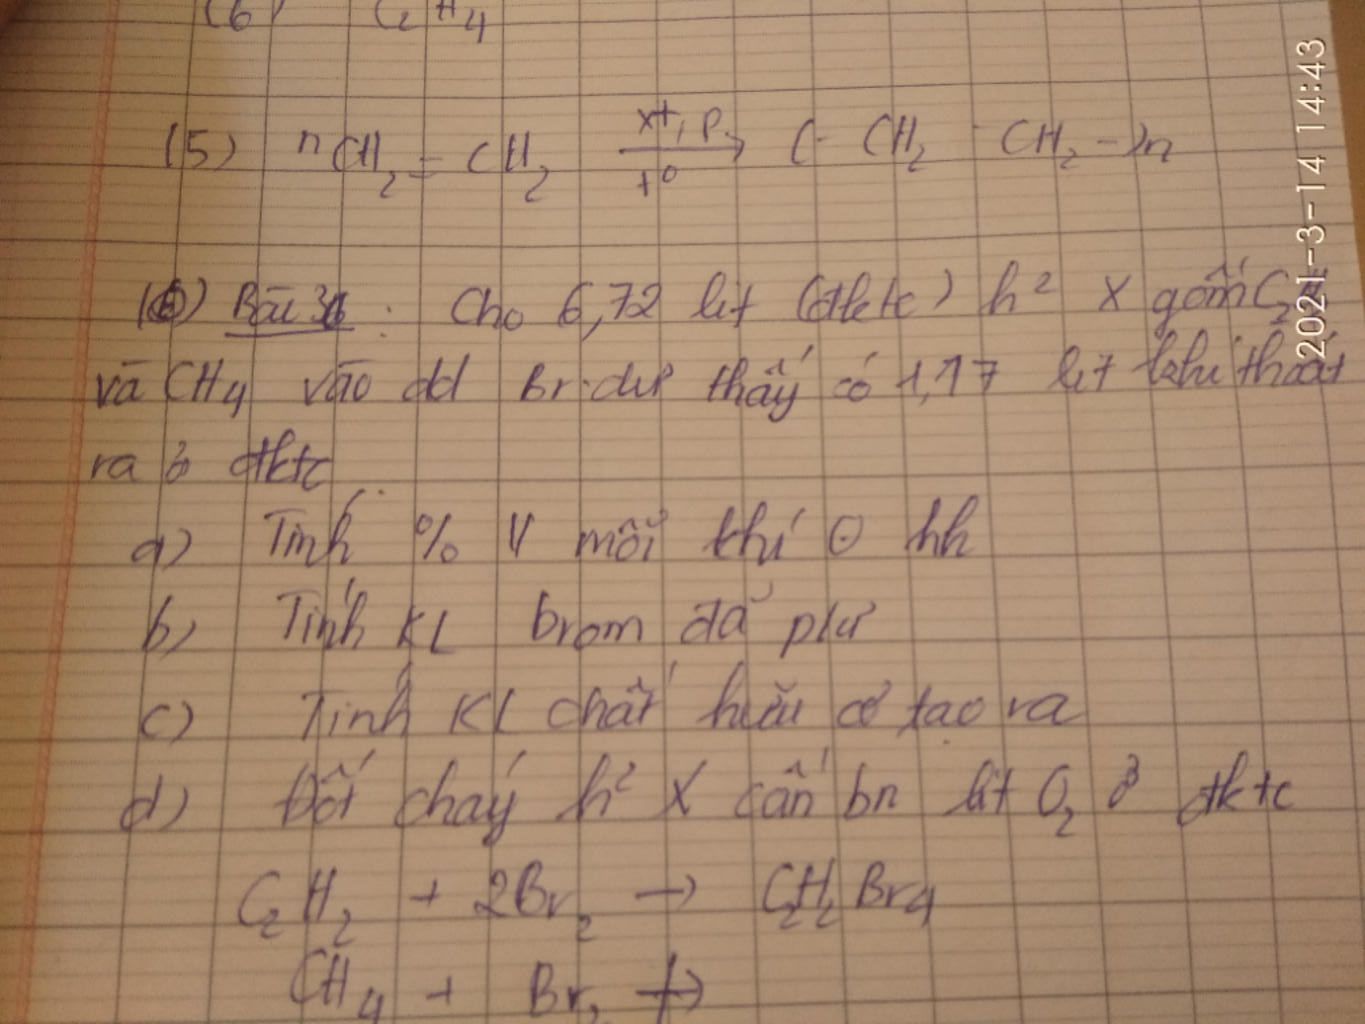 (6) C2H4
(5) nCH2 = CH2 xt, p, t° → (- CH2 - CH2 -)n
Bài 3: Cho 6,72 lit (đktc) h² X gồm C2H
và CH4 vào dd Br dư thấy có 1,17 lit khí thoát
ra ở đktc
a) Tính % V mỗi khí hh
b) Tính KL brom đã pư
c) Tính KL chất hữu cơ tạo ra
d) Đốt cháy h² X cần bn lit O2 ở đktc
C2H2 + 2Br2 → C2H2Br4
CH4 + Br2 ↛
2021-3-14 14:43